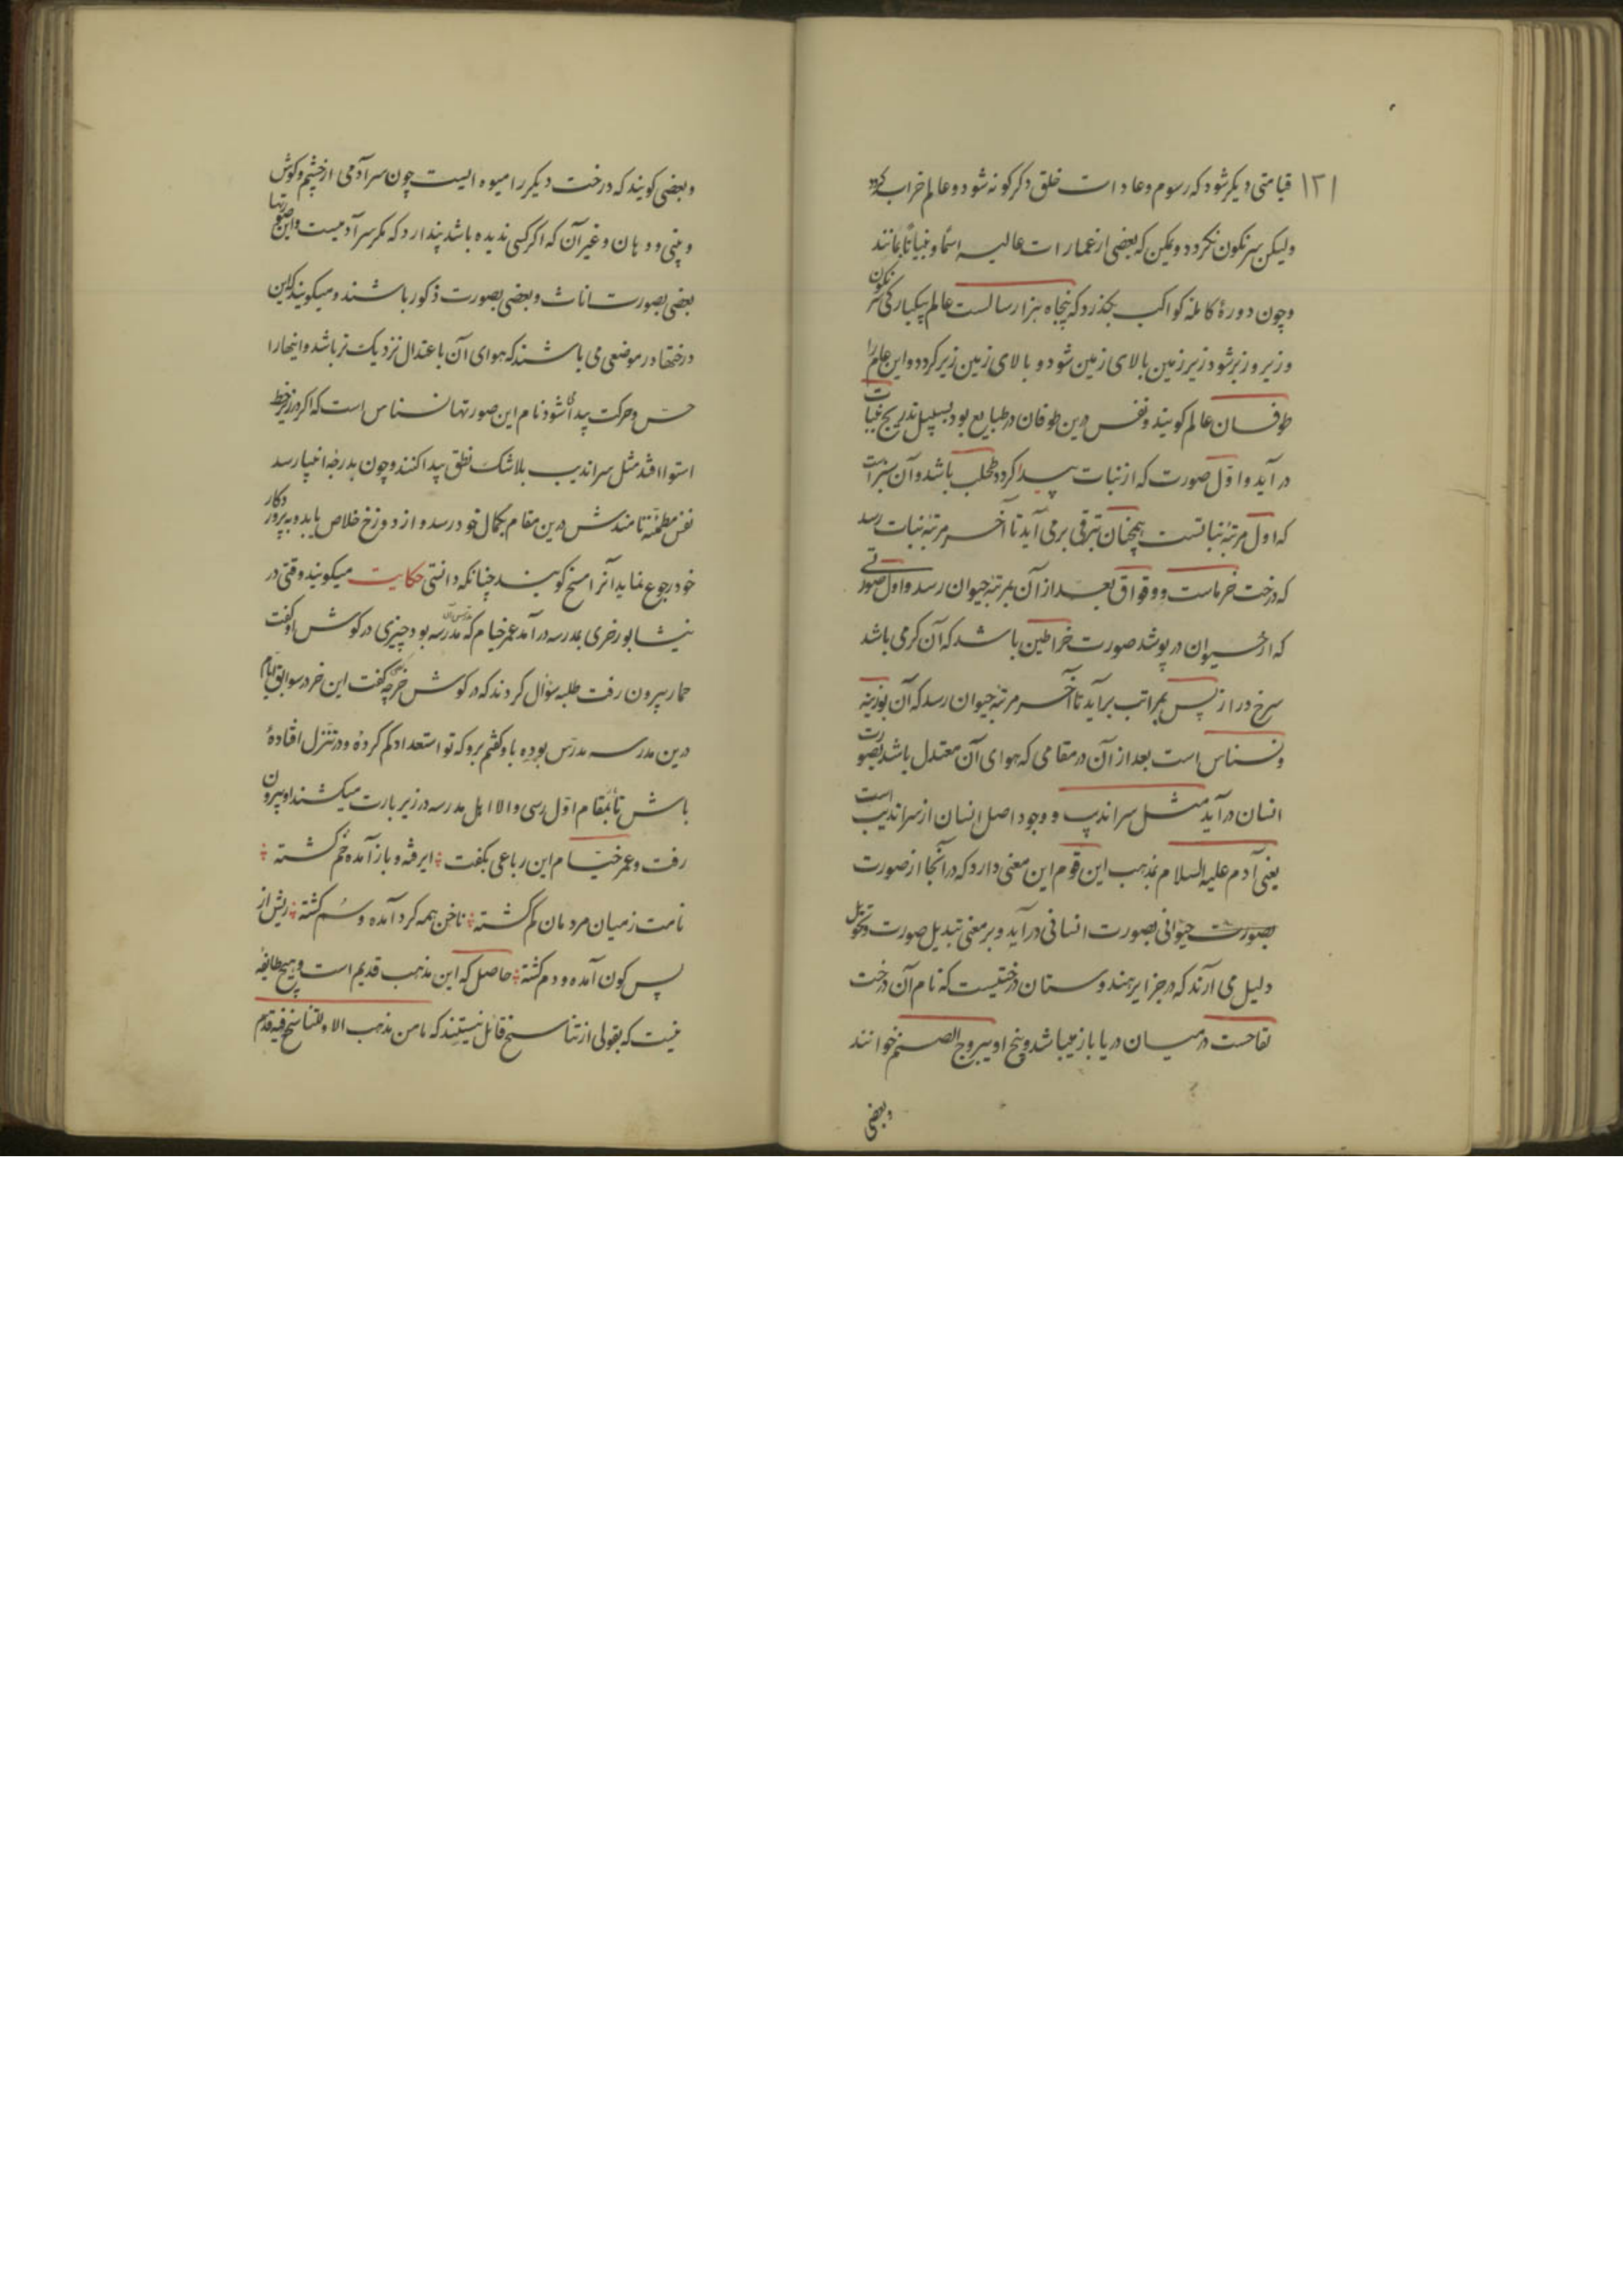 ۱۳۱ قیامتی دیکر شود که رسوم و عادات خلق دکرکونه شود و عالم خراب کردد
ولیکن سرنکون نکردد و یمکن که بعضی از عمارات عالیه اسما و بنیانا بمانند
و چون دورهٔ کامله کواکب بکذرد که پنجاه هزار سالست عالم یکبارکی سرنکون
و زیر و زبر شود زیر زمین بالای زمین شود و بالای زمین زیر کردد و این عالم را
طوفان عالم کویند و نفس درین طوفان در طبایع بود بسبیل تدریج نباتات
در آید و اول صورت که از نبات پیدا کردد طحلب باشد و آن سبزه است
که اول مرتبهٔ نباتست همچنان بترقی برمی آید تا آخر مرتبهٔ نبات رسد
که درخت خرماست و وقواق بعد از آن بمرتبهٔ حیوان رسد و اول صورتی
که از حیوان در پوشد صورت خراطین باشد که آن کرمی باشد
سرخ دراز پس بمراتب برآید تا آخر مرتبهٔ حیوان رسد که آن بوزینه
و نسناس است بعد از آن در مقامی که هوای آن معتدل باشد بصورت
انسان در آید مثل سراندیپ و وجود اصل انسان از سراندیب است
یعنی آدم علیه السلام بمذهب این قوم این معنی دارد که در آنجا از صورت
بصورت حیوانی بصورت انسانی در آید و بر معنی تبدیل صورت و تحویل
دلیل می آرند که در جزایر هندوستان درختیست که نام آن درخت
تفاحست در میان دریا باز میباشد و بیخ او یبروج الصنم خوانند
و بعضی
و بعضی کویند که درخت دیکر را میوه ایست چون سر آدمی از چشم و کوش
و بینی و دهان و غیر آن که اکر کسی ندیده باشد پندارد که مکر سر آدمیست و این صورتها
بعضی بصورت اناث و بعضی بصورت ذکور باشند و میکویند که این
درختها در موضعی می باشند که هوای آن باعتدال نزدیک تر باشد و اینها را
حس و حرکت پیدا شود نام این صورتها نسناس است که اکر در زیر خط
استوا افتد مثل سراندیب بلاشک نطق پیدا کنند و چون بدرجهٔ انبیا رسد
نفس مطمئنه نامندش درین مقام بکمال خود رسد و از دوزخ خلاص یابد و بپروردکار
خود رجوع نماید آنرا مسخ کویند چنانکه دانستی حکایت میکویند وقتی در
نیشابور خری بمدرسه در آمد عمر خیام که مدرس آن مدرسه بود چیزی در کوش او کفت
حمار بیرون رفت طلبه سؤال کردند که در کوش خر چه کفتی کفت این خر در سوابق ایام
درین مدرسه مدرس بوده باو کفتم برو که تو استعداد کم کردهٔ و در تنزل افتادهٔ
باش تا بمقام اول رسی و الا اهل مدرسه در زیر بارت میکشند او بیرون
رفت و عمر خیام این رباعی بکفت ؛ ای رفته و باز آمده خم کشته ؛
نامت ز میان مردمان کم کشته ؛ ناخن همه کرد آمده و سم کشته ؛ ریش از
پس کون آمده و دم کشته ؛ حاصل که این مذهب قدیم است و هیچ طایفه
نیست که بقولی از تناسخ قائل نیستند که ما من مذهب الا و للتناسخ فیه قدم